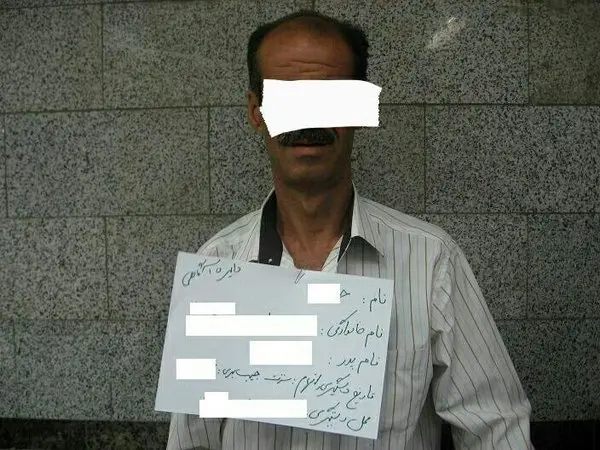 دایره آگاهی
نام : ح
نام خانوادگی :
نام پدر :
تاریخ دستگیری اتهام : سرقت جیب بری :
محل دستگیری :